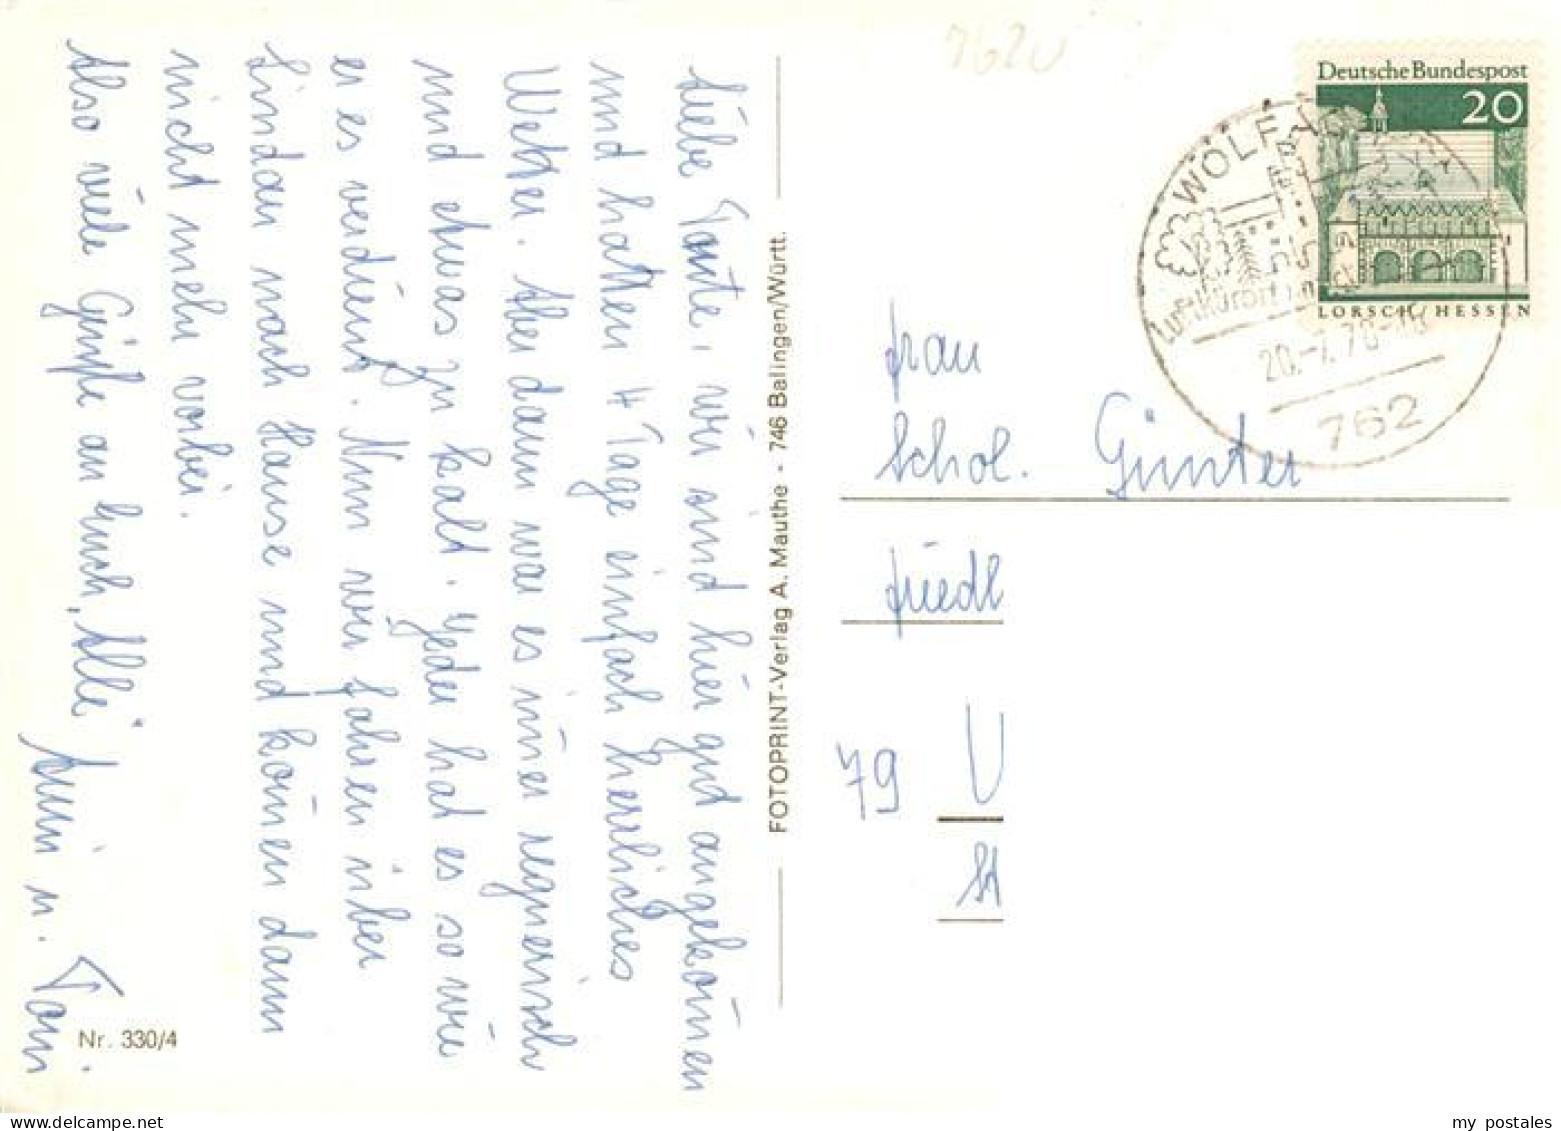 Liebe Tante, wir sind hier gut angekom̄en
und hatten 4 Tage einfach herrliches
Wetter. Aber dann war es im̄er regnerisch
und etwas zu kalt. Jeder hat es so wie
er es verdient. Nun wir fahren über
Lindau nach Hause und kön̄en dann
nicht mehr vorbei.
Also viele Grüße an Euch „Alle"
u. Toni
Nr. 330/4
FOTOPRINT-Verlag A. Mauthe - 746 Balingen/Württ.
7620
Deutsche Bundespost
20
LORSCH/HESSEN
WOLFACH
Luftkurort im
20.-7.70-18
762
Frau
Schol. Günter
Friedl
79 U
St
my postales